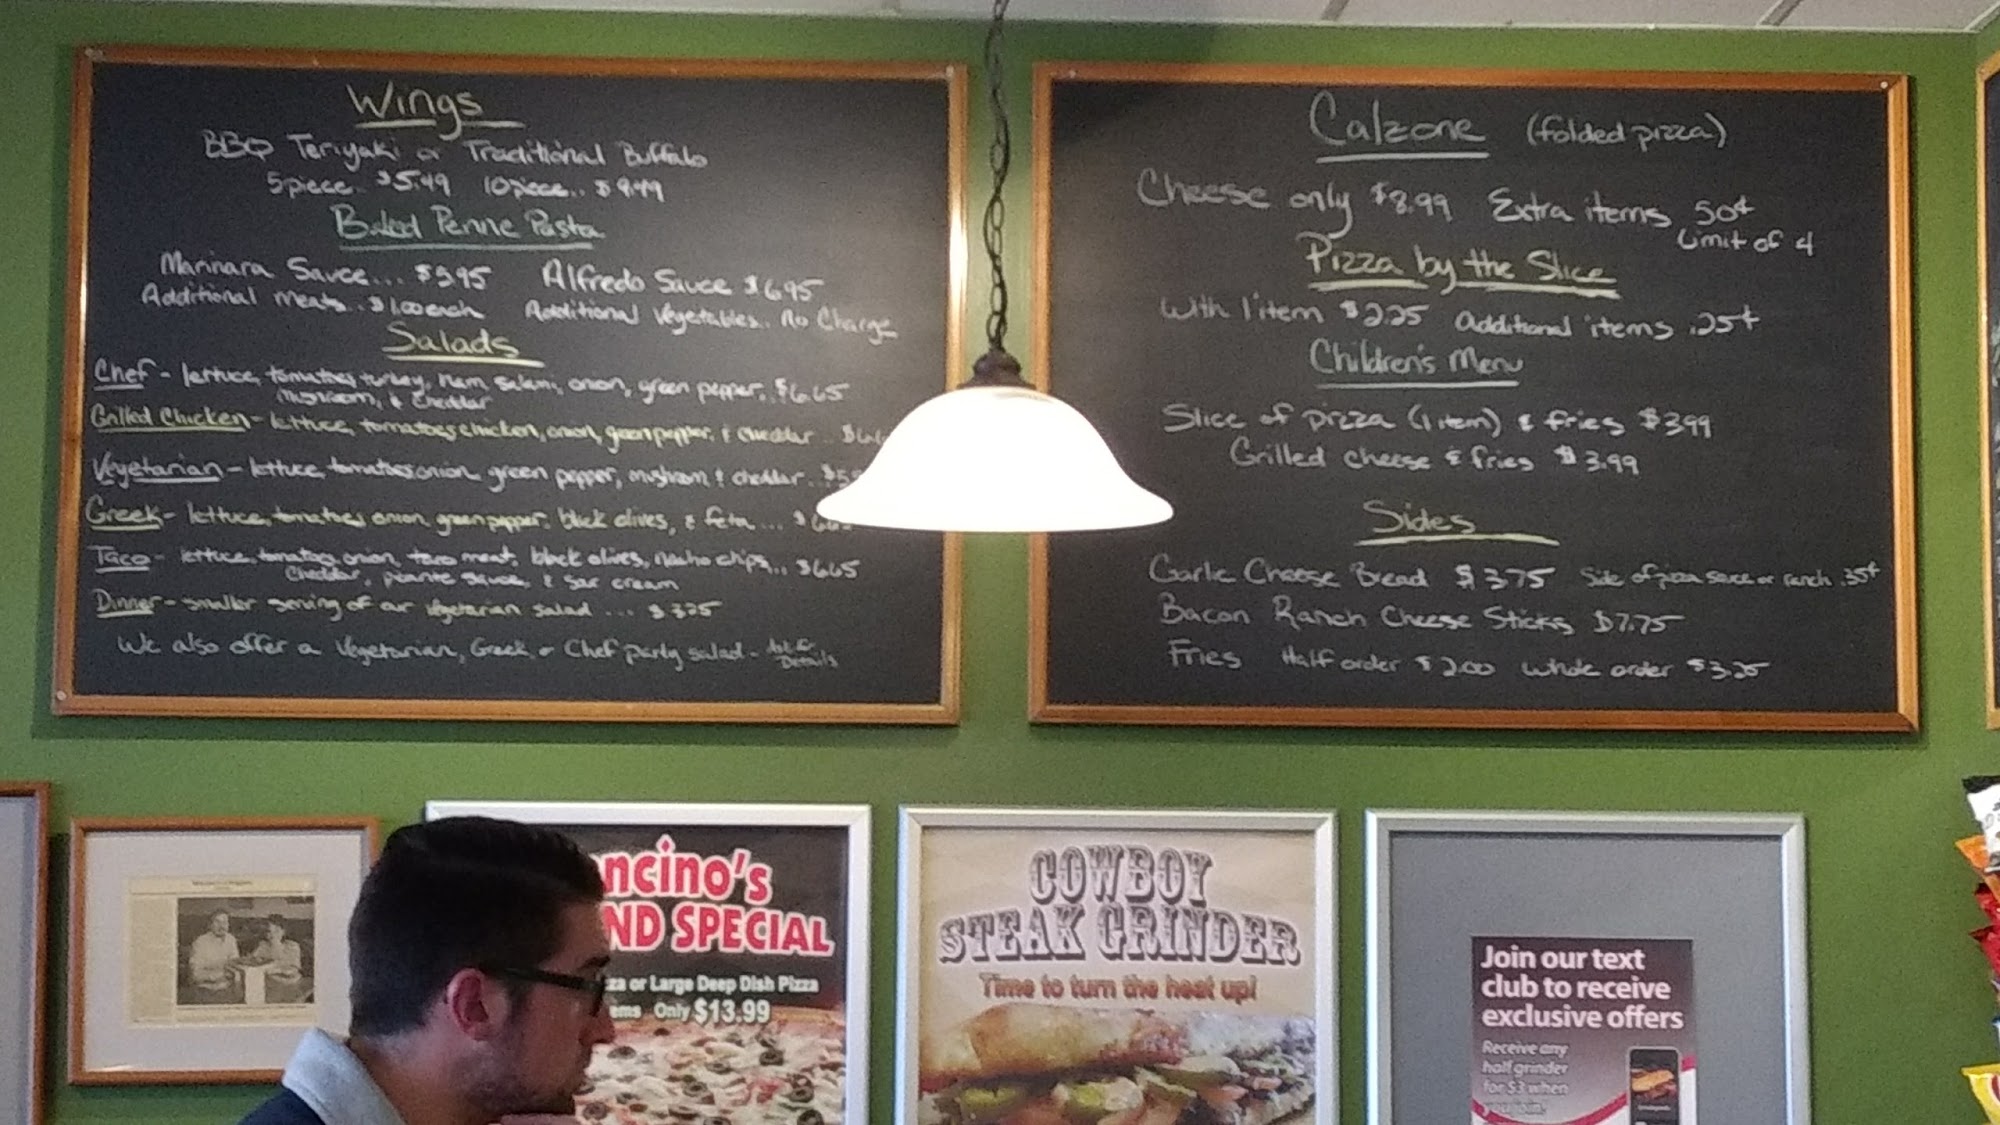 Wings
BBQ Teriyaki or Traditional Buffalo
5 piece.. $5.49 10 piece.. $9.49
Baked Penne Pasta
Marinara Sauce... $5.95 Alfredo Sauce $6.95
Additional meats.. $1.00 each Additional Vegetables.. No Charge
Salads
Chef - lettuce, tomatoes, turkey, ham, salami, onion, green pepper, $6.65
mushroom, & Cheddar
Grilled Chicken - lettuce, tomatoes, chicken, onion, green pepper, & cheddar ..
Vegetarian - lettuce, tomatoes, onion, green pepper, mushroom & cheddar ..
Greek - lettuce, tomatoes, onion, green pepper, black olives, & feta ...
Taco - lettuce, tomatoes, onion, taco meat, black olives, nacho chips... $6.65
Cheddar, picante sauce, & sour cream
Dinner - smaller serving of our vegetarian salad ... $3.25
We also offer a Vegetarian, Greek, or Chef party salad - Ask for
Details
Calzone (folded pizza)
Cheese only $8.99 Extra items 50¢
Limit of 4
Pizza by the Slice
With 1 item $2.25 Additional items .25¢
Children's Menu
Slice of pizza (1 item) & fries $3.99
Grilled cheese & fries $3.99
Sides
Garlic Cheese Bread $3.75 Side of pizza sauce or ranch .35¢
Bacon Ranch Cheese Sticks $7.75
Fries Half order $2.00 whole order $3.25
ncino's
ND SPECIAL
za or Large Deep Dish Pizza
ems Only $13.99
COWBOY
STEAK GRINDER
Time to turn the heat up!
Join our text
club to receive
exclusive offers
Receive any
half grinder
for $3 when
you join!